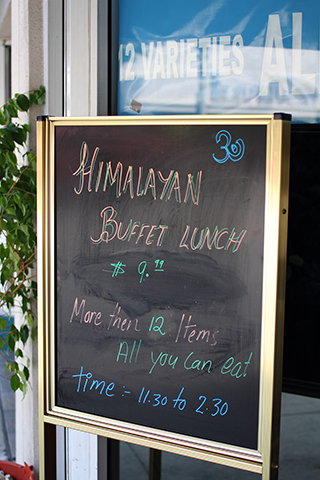 12 VARIETIES AL
30
HIMALAYAN
BUFFET LUNCH
$ 9.99
More then 12 Items
All you can eat
time :- 11.30 to 2.30